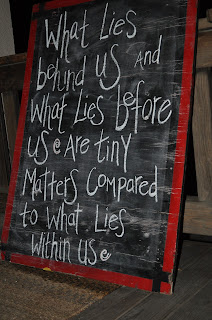 What Lies
behind US AND
What Lies Before
US @ Are tiny
Matters Compared
to What Lies
Within US @